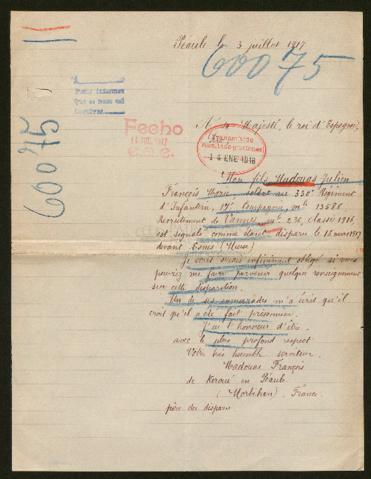 Péaule le 3 juillet 1917
60075
60075
Fecho
A Sa Majesté, le roi d'Espagne,
14 ENE 1918
Mon fils Madouas Julien
François Marie soldat au 338e Régiment
d'Infanterie, 17e Compagnie, nle
Recrutement de Vannes nle 236, classe
est signalé comme étant disparu le 18 mars 1917
devant
Je serai infiniment obligé si vous
pouviez me faire parvenir quelque renseignement
sur cette disparition.
Un de ses camarades m'a écrit qu'il
croit qu'il a été fait prisonnier.
J'ai l'honneur d'être,
avec le plus profond respect
Votre très humble serviteur.
Madouas François
de Keroué en Péaule
(Morbihan), France
père du disparu